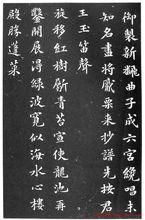 御製新翻曲子成六宮纔唱未
知名盡將觱栗來抄譜先按君
王玉笛聲
旋移紅樹斸青苔宣使龍池再
鑿開展得綠波寬似海水心樓
殿勝蓬萊